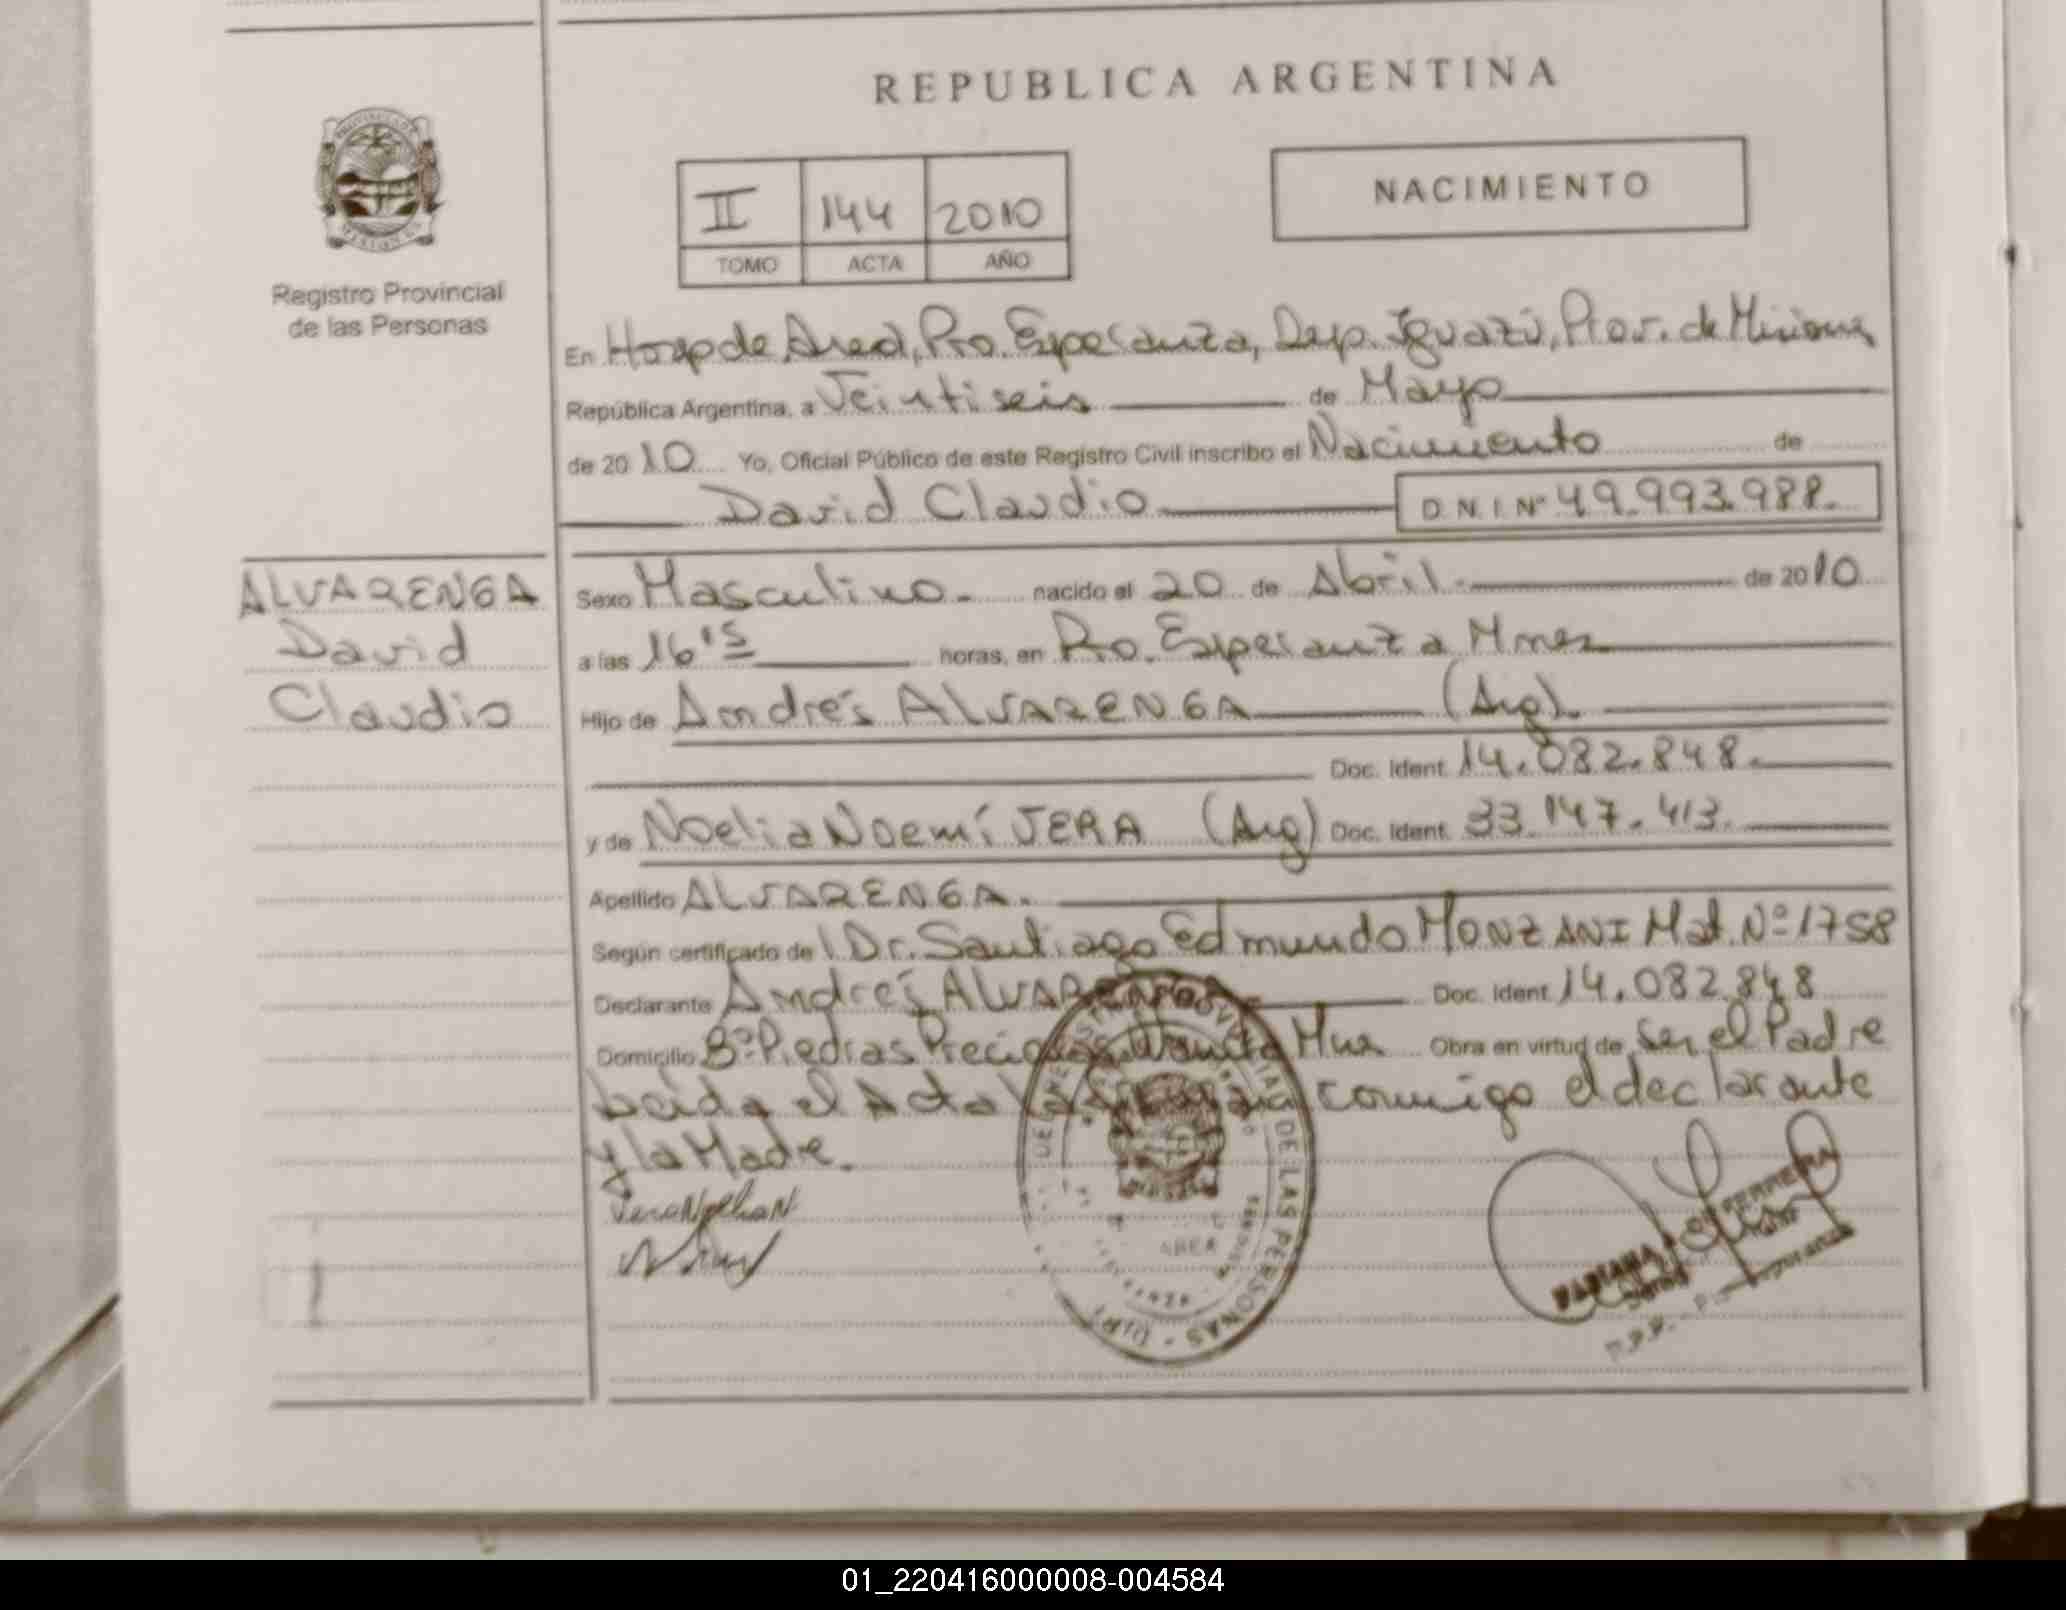 REPUBLICA ARGENTINA
II 144 2010
TOMO ACTA AÑO
NACIMIENTO
Registro Provincial
de las Personas
En Hosp de Area, Pto. Esperanza, Dep. Iguazú, Prov. de Misiones
República Argentina, a Veintiseis de Mayo
de 2010 Yo, Oficial Público de este Registro Civil inscribo el Nacimiento de
David Claudio D.N.I. Nº 49.993.988.
ALVARENGA
David
Claudio
Sexo Masculino. nacido el 20 de Abril. de 2010
a las 16'15 horas, en Pto. Esperanza Mnes
Hijo de Andrés ALVARENGA (Arg).
Doc. Ident. 14.082.848.
y de Noelia Noemí VERA (Arg) Doc. Ident. 33.147.413.
Apellido ALVARENGA.
Según certificado de Dr. Santiago Edmundo MONZANI Mat. Nº 1758
Declarante Andrés ALVARENGA Doc. Ident. 14.082.848
Domicilio Bº Piedras Preciosas Wanda Mnes Obra en virtud de Ser el Padre
Leída el Acta la conmigo el declarante
y la Madre.
Vera Noelia N
DE LAS PERSONAS
FERREIRA
FABIANA
01_220416000008-004584